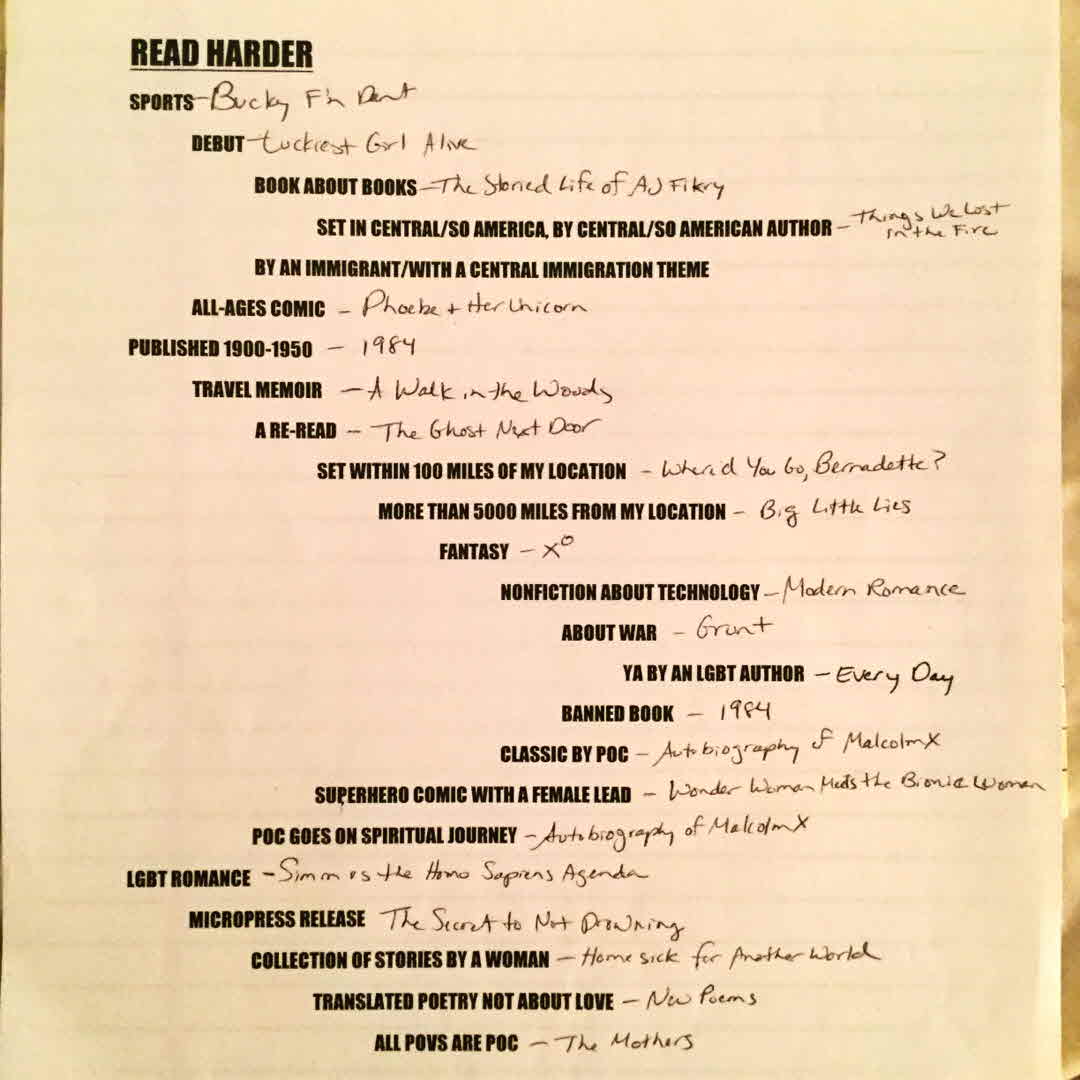 READ HARDER
SPORTS - Bucky F'n Dent
DEBUT - Luckiest Girl Alive
BOOK ABOUT BOOKS - The Storied Life of AJ Fikry
SET IN CENTRAL/SO AMERICA, BY CENTRAL/SO AMERICAN AUTHOR - Things We Lost
in the Fire
BY AN IMMIGRANT/WITH A CENTRAL IMMIGRATION THEME
ALL-AGES COMIC - Phoebe + Her Unicorn
PUBLISHED 1900-1950 - 1984
TRAVEL MEMOIR - A Walk in the Woods
A RE-READ - The Ghost Next Door
SET WITHIN 100 MILES OF MY LOCATION - Where'd You Go, Bernadette?
MORE THAN 5000 MILES FROM MY LOCATION - Big Little Lies
FANTASY - X⁰
NONFICTION ABOUT TECHNOLOGY - Modern Romance
ABOUT WAR - Grunt
YA BY AN LGBT AUTHOR - Every Day
BANNED BOOK - 1984
CLASSIC BY POC - Autobiography of Malcolm X
SUPERHERO COMIC WITH A FEMALE LEAD - Wonder Woman Meets the Bionic Woman
POC GOES ON SPIRITUAL JOURNEY - Autobiography of Malcolm X
LGBT ROMANCE - Simon vs the Homo Sapiens Agenda
MICROPRESS RELEASE The Secret to Not Drowning
COLLECTION OF STORIES BY A WOMAN - Homesick for Another World
TRANSLATED POETRY NOT ABOUT LOVE - New Poems
ALL POVS ARE POC - The Mothers